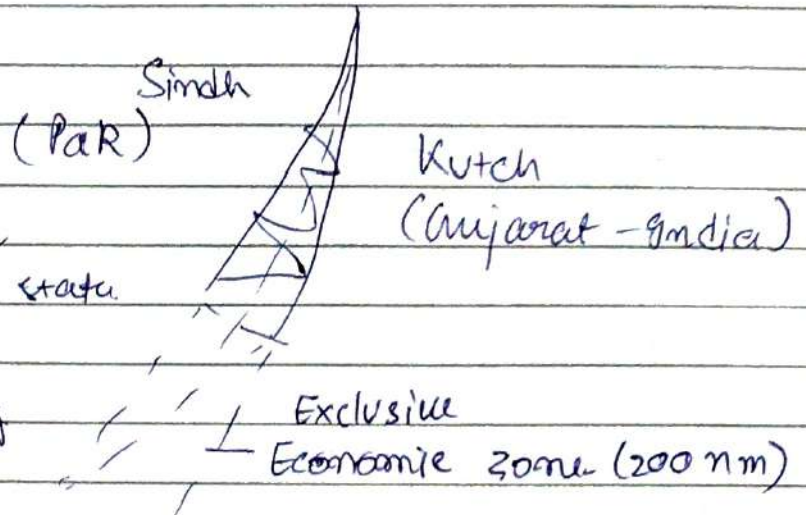 Sindh
(Pak)
Kutch
(Gujarat - India)
state
Exclusive
Economic zone (200 nm)